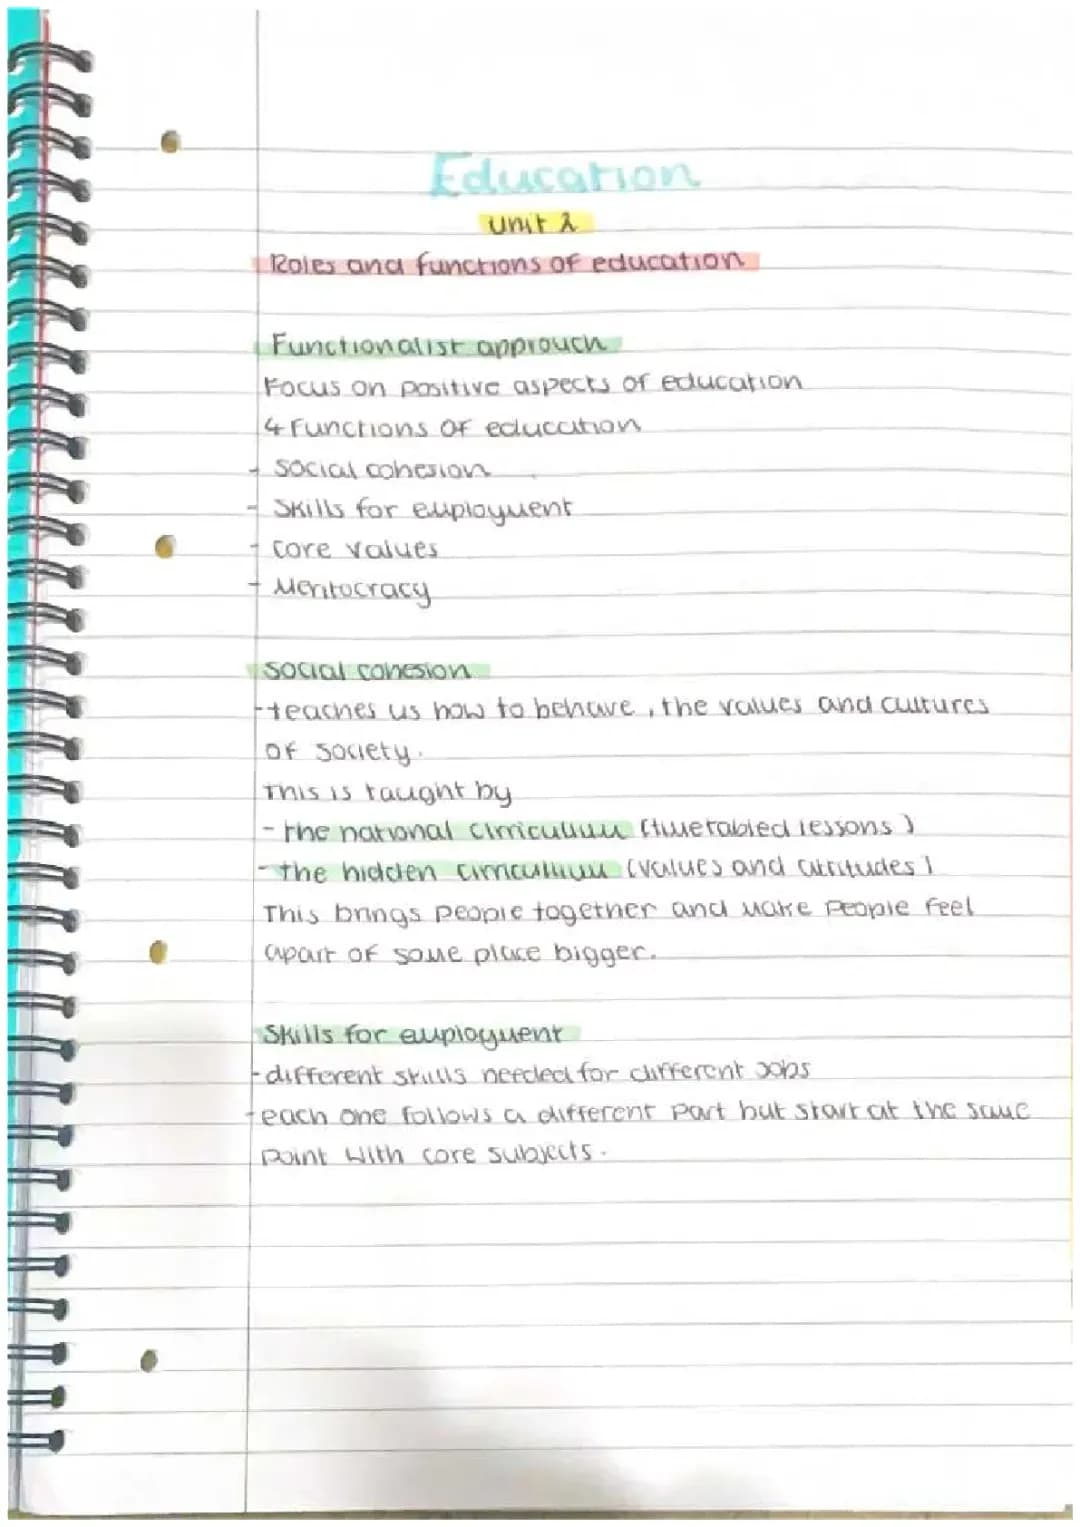 Education
Unit 2
Roles and functions of education
Functionalist approuch
Focus on positive aspects of education
4 Functions of education
- Social cohesion
- Skills for employment
- Core values
- Meritocracy
Social cohesion
- teaches us how to behave, the values and cultures
of society.
This is taught by
- the national cirriculium (timetabled lessons)
- the hidden cirriculium (values and attitudes)
This brings people together and make people feel
apart of some place bigger.
Skills for employment
- different skills needed for different jobs
- each one follows a different part but start at the same
point with core subjects.